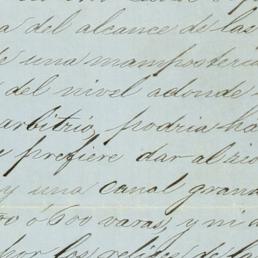 a del alcance de las
de una mamposteria
del nivel adonde
arbitrio, podria ha
e prefiere dar al rio
y una canal grand
00 ó 600 varas, y ni d
por los relices de la